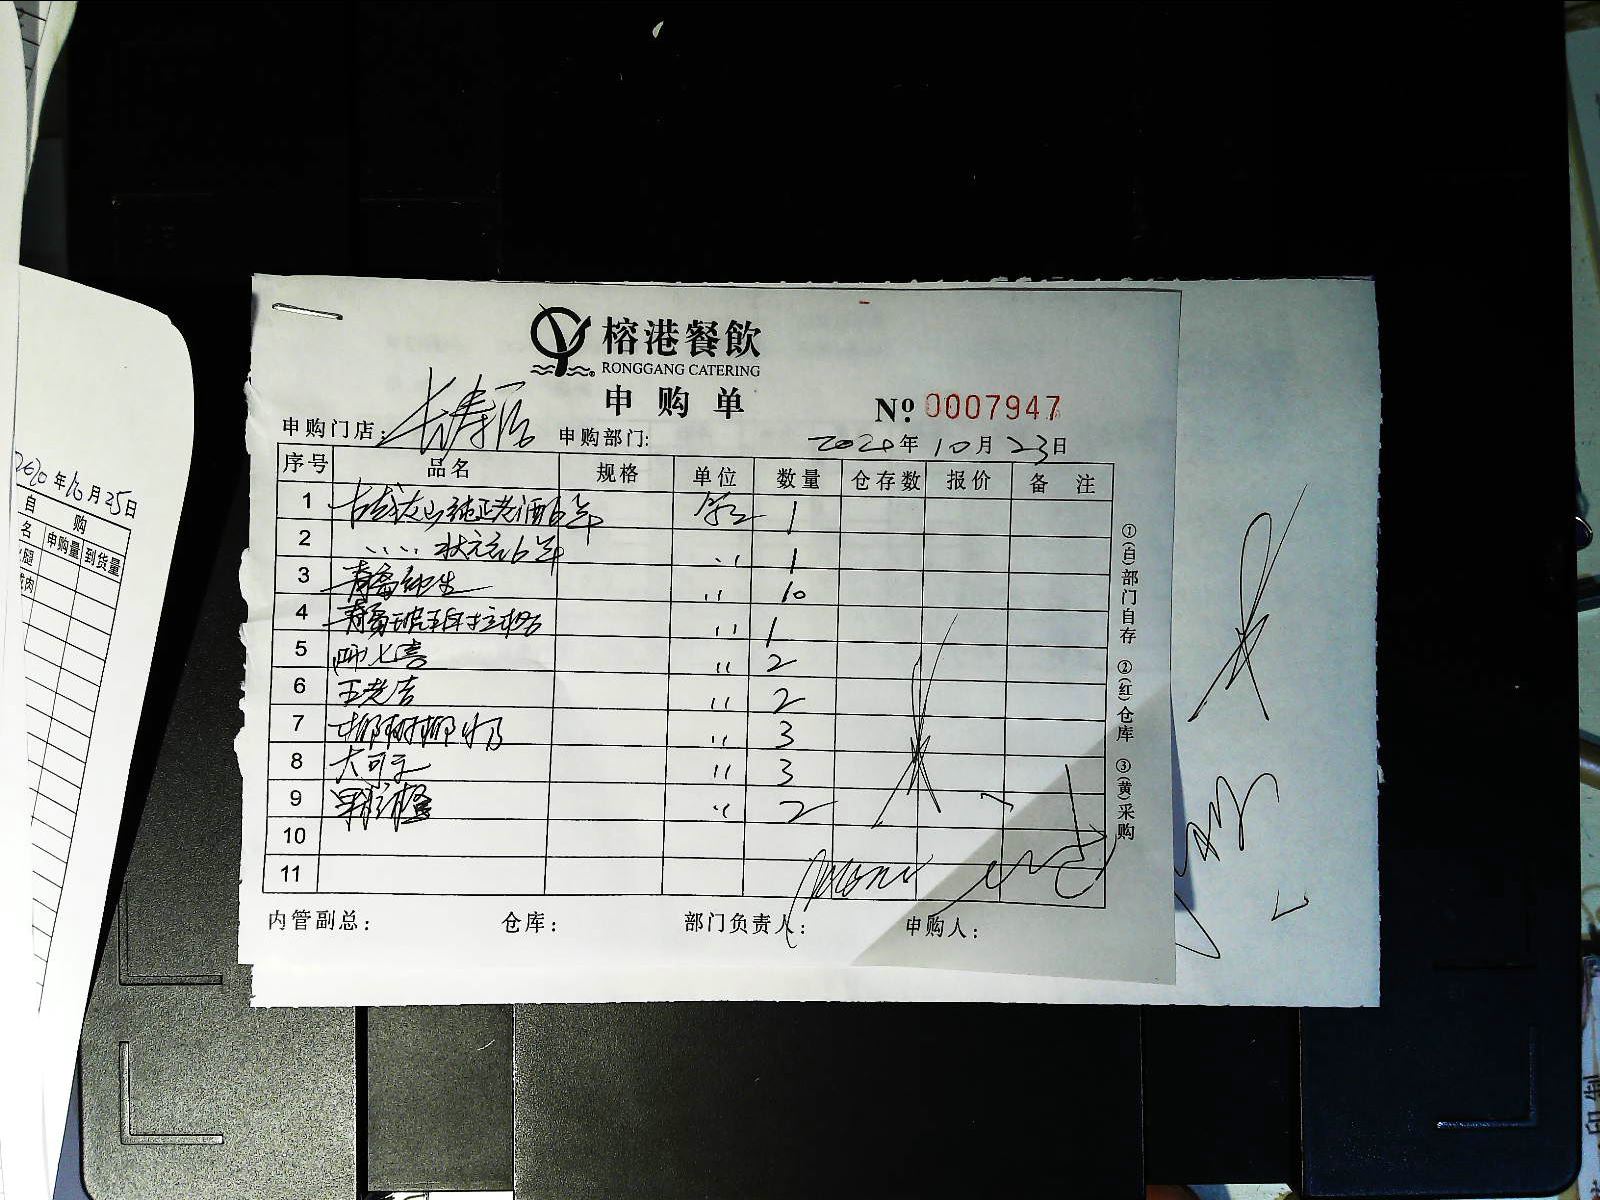 榕港餐飲
RONGGANG CATERING
申购单
No. 0007947
申购门店: 长寿店 申购部门: 2020年10月23日
序号 品名 规格 单位 数量 仓存数 报价 备注
1 古越龙山纯正老酒6年 1
2 〃〃 状元红6年 〃 1
3 青岛纯生 〃 10
4 〃 1
5 〃 2
6 王老吉 〃 2
7 椰树椰奶 〃 3
8 大可乐 〃 3
9 果粒橙 〃 2
10
11
内管副总: 仓库: 部门负责人: 申购人:
①(白)部门自存 ②(红)仓库 ③(黄)采购
2020年10月25日
自购
名 申购量 到货量
腿
肉